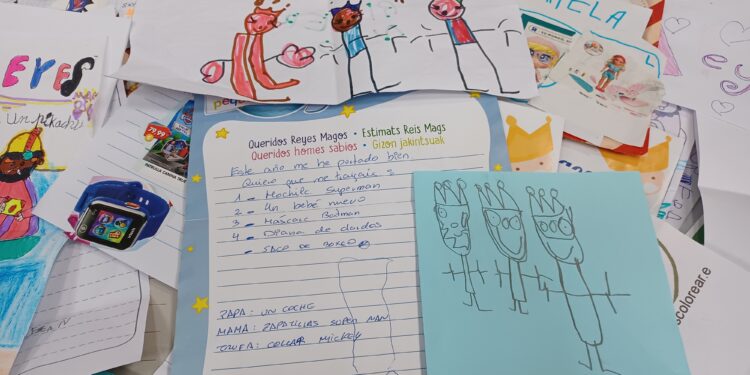 EYES
Un pikachu
79,99
Queridos Reyes Magos • Estimats Reis Mags
Queridos homes sabios • Gizon jakintsuak
Este año me he portado bien
Quiero que me traigais :
1 - Mochila Superman
2 - Un bebé nuevo
3 - Mascara Badman
4 - Diana de dardos
- SACO DE BOXEO
PAPA: UN COCHE
MAMA: ZAPATILLAS SUPER MAN
TRUFA: COLLAR MICKEY
scolorear.e